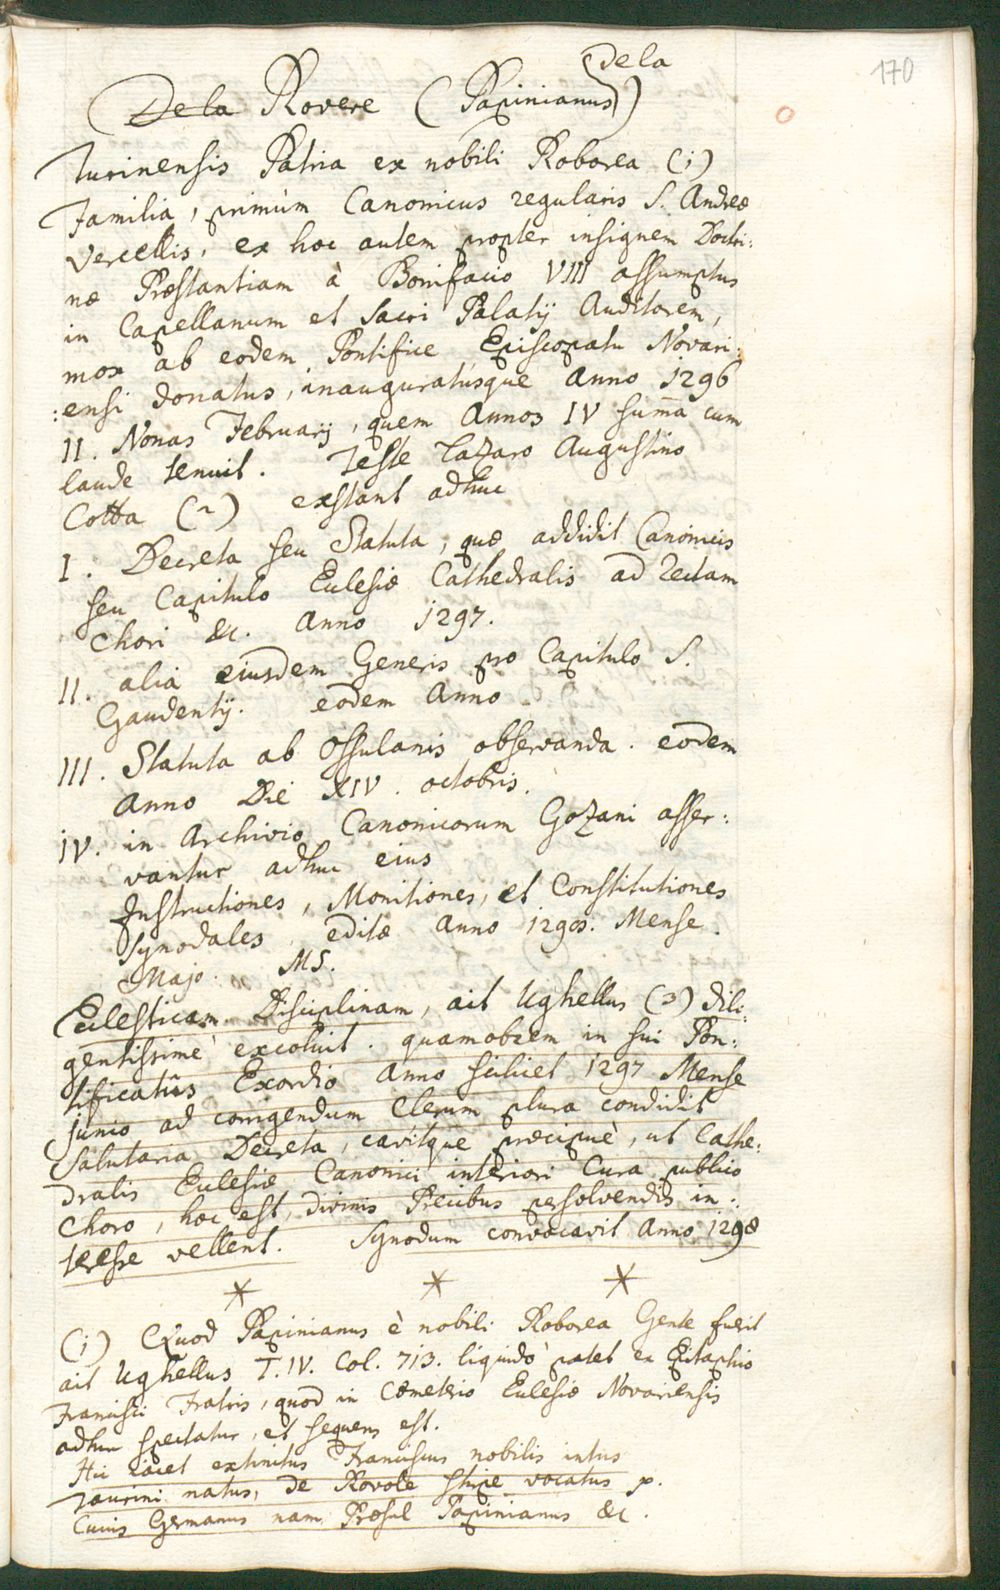 170
De la
De la Rovere (Papinianus)
Turinensis Patria ex nobili Roborea (1)
Familia, primùm Canonicus regularis S. Andreæ
Vercellis, ex hoc autem propter insignem Doctri:
næ Præstantiam à Bonifacio VIII assumptus
in Capellanum et Sacri Palatij Auditorem,
mox ab eodem Pontifice Episcopatu Novari:
:ensi donatus, inauguratusque Anno 1296
II. Nonas Februarij, quem Annos IV summa cum
laude tenuit. Teste Lazaro Augustino
Cotta (2) exstant adhuc
I. Decreta seu Statuta, quæ addidit Canonicis
seu Capitulo Eclesiæ Cathedralis ad rectam
Chori &c. Anno 1297.
II. alia eiusdem Generis pro Capitulo S.
Gaudentij. eodem Anno.
III. Statuta ab Ossulanis observanda. eodem
Anno Die XIV. octobris.
IV. in Archivio Canonicorum Gozani asser:
vantur adhuc eius
Instructiones, Monitiones, et Constitutiones
Synodales, editæ Anno 1298. Mense
Majo. MS.
Eclesticam Disciplinam, ait Ughellus (3) dili:
gentissimè excoluit. quamobrem in sui Pon:
tificatûs Exordio Anno scilicet 1297 Mense
Junio ad corrigendum Clerum plura condidit
Salutaria Decreta, cavitque præcipuè, ut Cathe:
dralis Eclesiæ Canonici interiori Cura publico
Choro, hoc est, divinis Precibus persolvendis in:
teresse vellent. Synodum convocavit Anno 1298
* * *
(1) Quod Papinianus è nobili Roborea Gente fuerit
ait Ughellus T. IV. Col. 713. liquidò patet ex Epitaphio
Francisci Fratris, quod in Cœmeterio Eclesiæ Novariensis
adhuc spectatur, et sequens est.
Hic iacet extinctus Franciscus nobilis intus
Taurini natus, de Rovole stirpe vocatus p.
Cuius Germanus nam Præsul Papinianus &c.